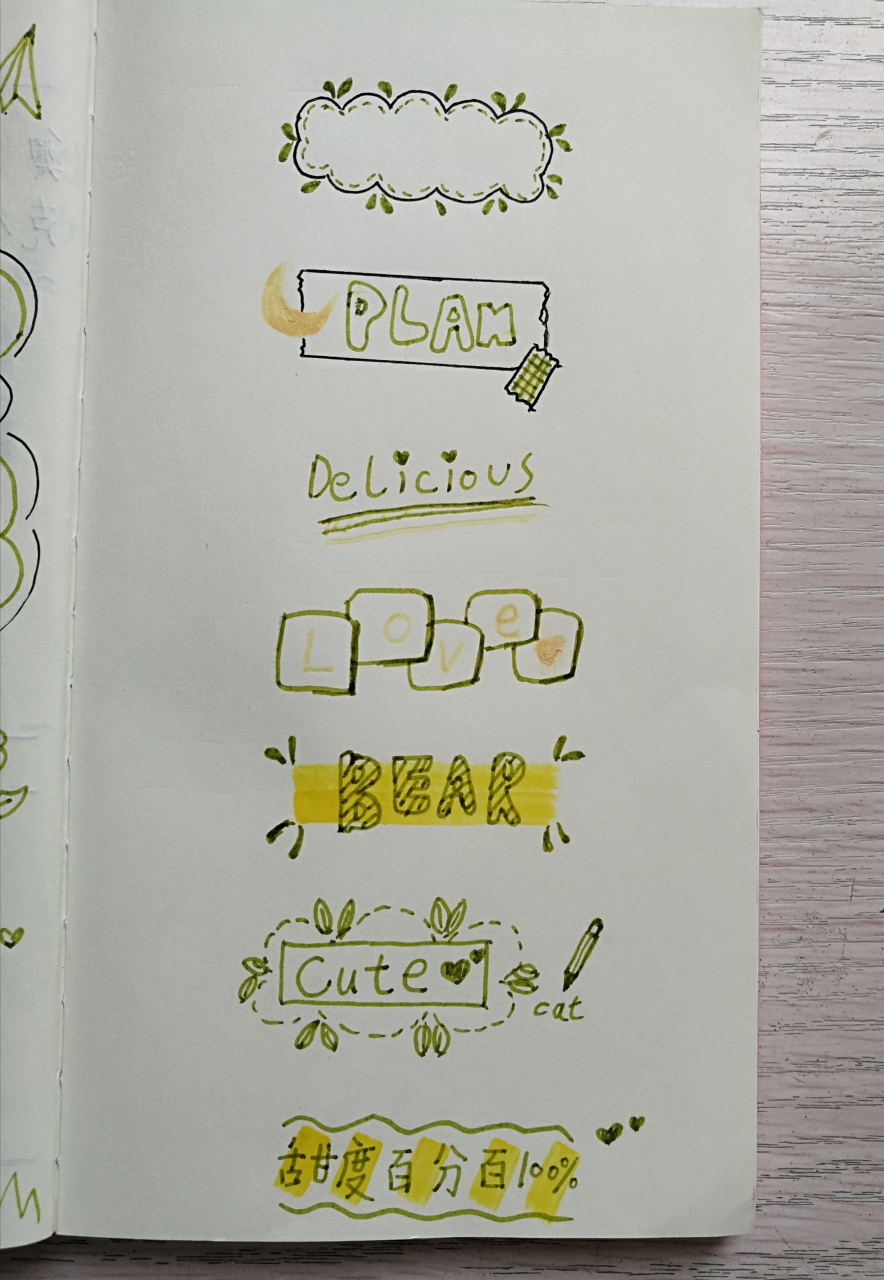 PLAN
Delicious
Love
BEAR
Cute
cat
甜度百分百100%